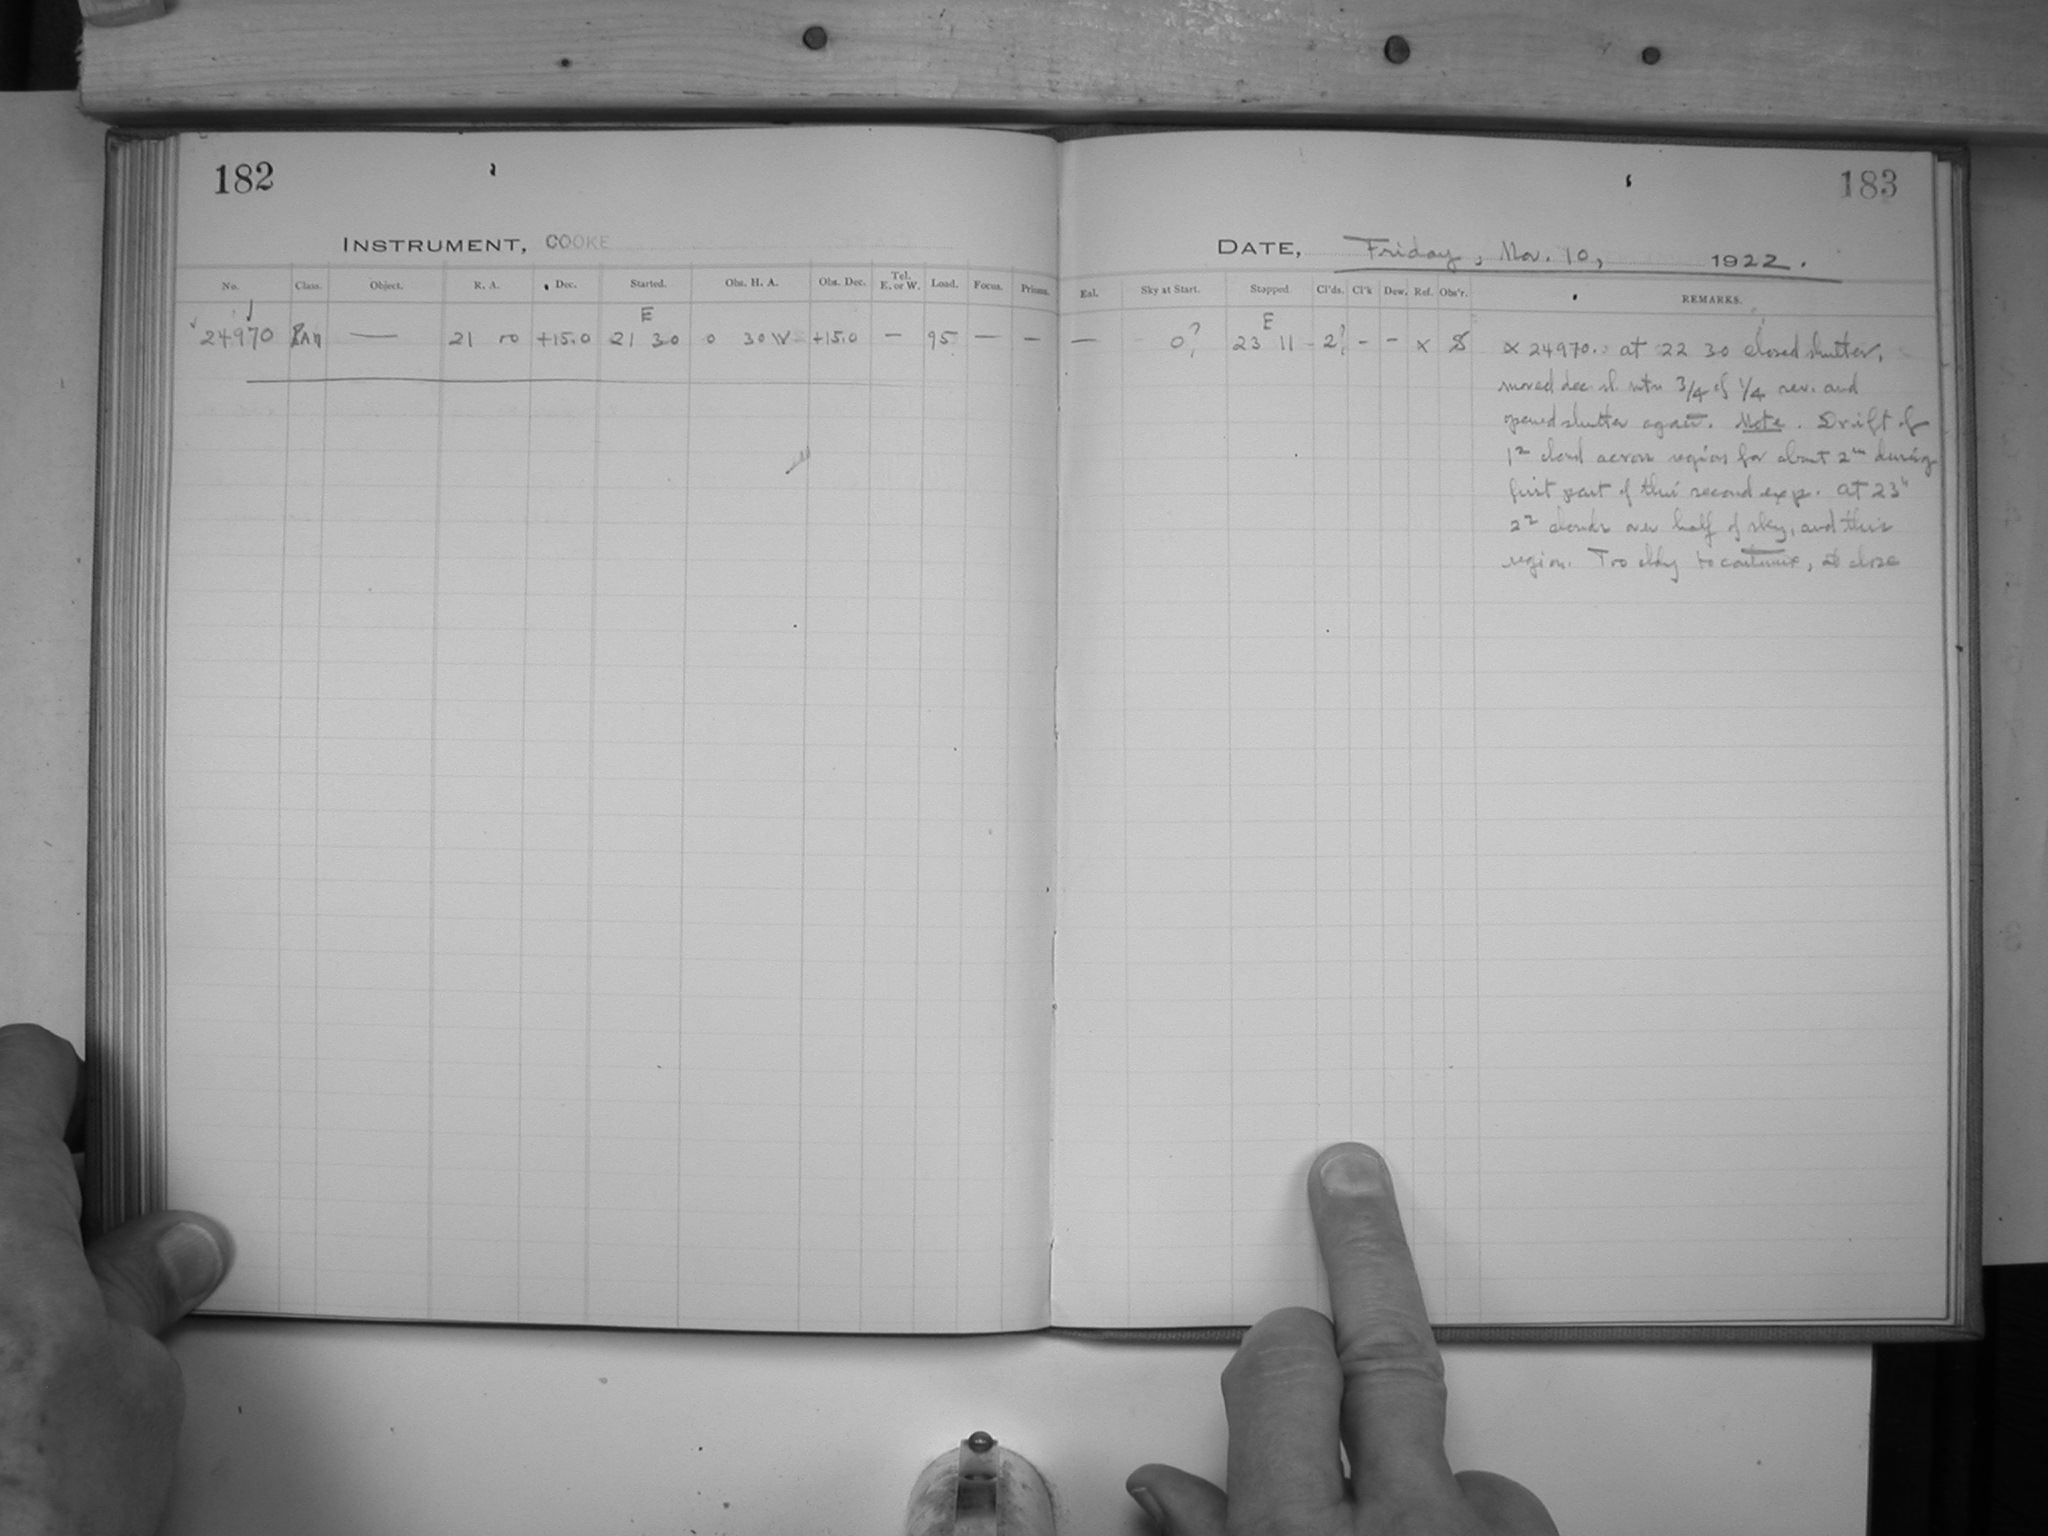 182
183
INSTRUMENT, COOKE
DATE, Friday, Nov. 10, 1922.
No. Class. Object. R. A. Dec. Started. Obs. H. A. Obs. Dec. Tel. E. or W. Load. Focus. Prisms.
Eal. Sky at Start. Stopped Cl'ds. Cl'k Dew. Ref. Obs'r. REMARKS.
E
E
24970 — 21 00 +15.0 21 30 0 30 W +15.0 — 95 — —
— 0? 23 11 2? - - x S
x 24970. at 22 30 closed shutter,
moved dec. sl. mtn 3/4 of 1/4 rev. and
opened shutter again. Note. Drift of
cloud across region for about 2m during
first part of this second exp. at 23h
clouds over half of sky, and this
region. Too cldy to continue, close